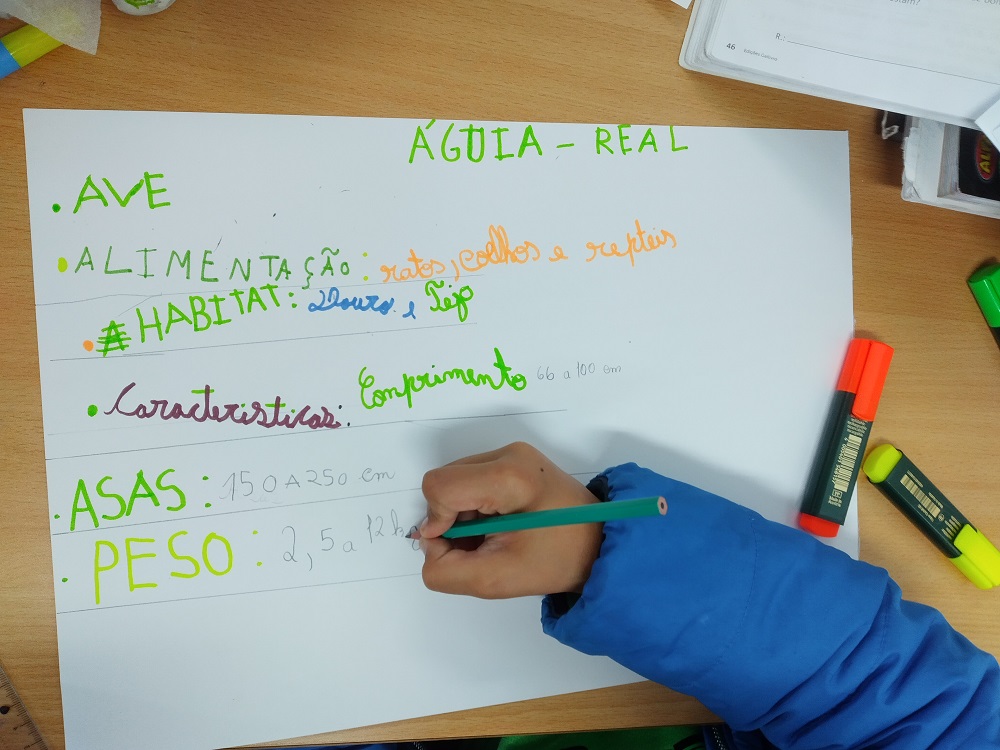 ÁGUIA - REAL
• AVE
• ALIMENTAÇÃO: ratos, coelhos e repteis
• HABITAT: Douro e Tejo
• Caracteristicas: Comprimento 66 a 100 cm
• ASAS: 150 A 250 cm
• PESO: 2,5 a 12 kg
R.:
46